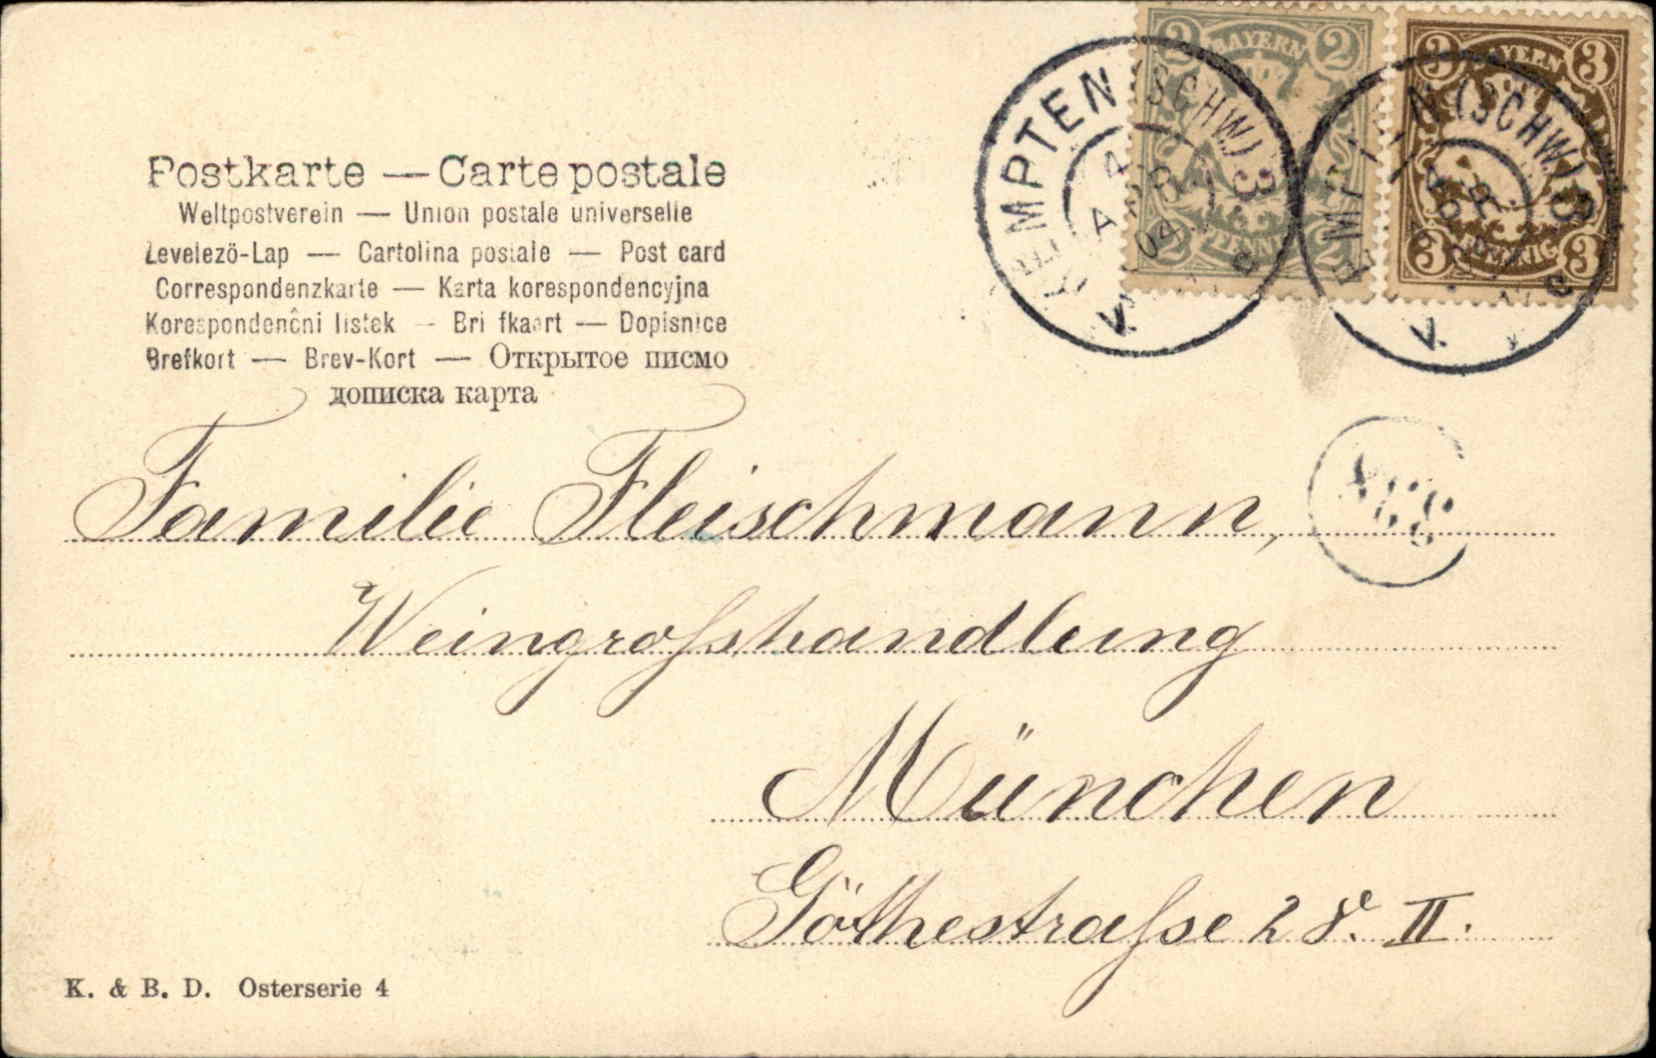 Postkarte — Carte postale
Weltpostverein — Union postale universelle
Levelezö-Lap — Cartolina postale — Post card
Correspondenzkarte — Karta korespondencyjna
Korespondenčni listek — Briefkaart — Dopisnice
Brefkort — Brev-Kort — Открытое писмо
дописка карта
2 BAYERN 2
PFENNIG
2 2
3 BAYERN 3
PFENNIG
3 3
KEMPTEN (SCHW) 3
4 APR 04
KEMPTEN (SCHW) 3
Familie Fleischmann,
Weingrosshandlung
München
Göthestrasse 28. II.
K. & B. D. Osterserie 4